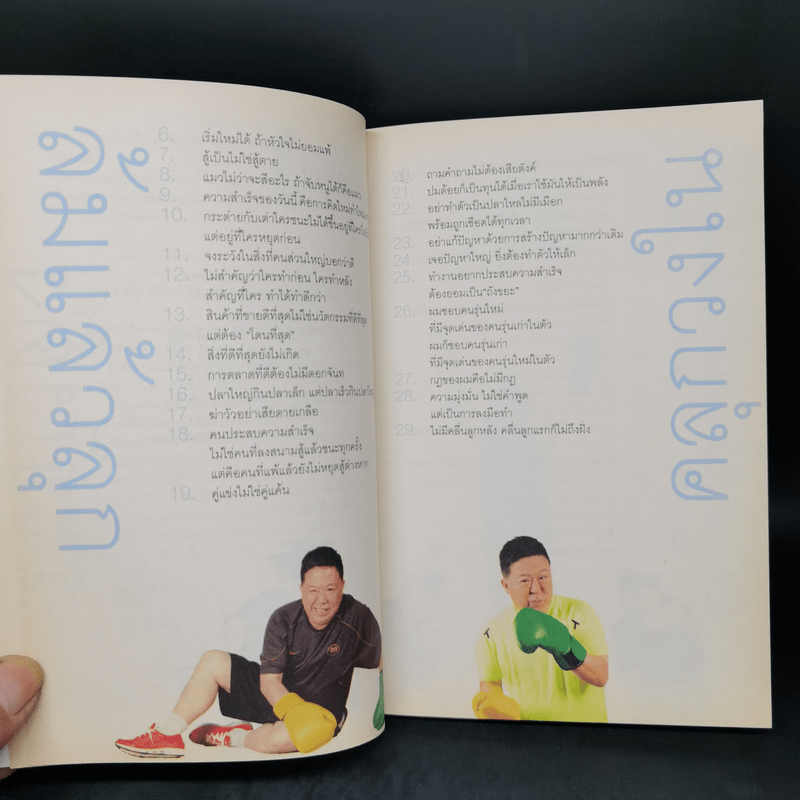 ล้มแล้วลุก
6. เริ่มใหม่ได้ ถ้าหัวใจไม่ยอมแพ้
7. สู้เป็นไม่ใช่สู้ตาย
8. แมวไม่ว่าจะสีอะไร ถ้าจับหนูได้ก็คือแมว
9. ความสำเร็จของวันนี้ คือการคิดใหม่ทำใหม่
10. กระต่ายกับเต่าใครชนะไม่ได้ขึ้นอยู่ที่ใคร
แต่อยู่ที่ใครหยุดก่อน
11. จงระวังในสิ่งที่คนส่วนใหญ่บอกว่าดี
12. ไม่สำคัญว่าใครทำก่อน ใครทำหลัง
สำคัญที่ใคร ทำได้ทำดีกว่า
13. สินค้าที่ขายดีที่สุดไม่ใช่นวัตกรรมที่ดีที่สุด
แต่ต้อง "โดนที่สุด"
14. สิ่งที่ดีที่สุดยังไม่เกิด
15. การตลาดที่ดีต้องไม่มีดอกจันท
16. ปลาใหญ่กินปลาเล็ก แต่ปลาเร็วกินปลา
17. ฆ่าวัวอย่าเสียดายเกลือ
18. คนประสบความสำเร็จ
ไม่ใช่คนที่ลงสนามสู้แล้วชนะทุกครั้ง
แต่คือคนที่แพ้แล้วยังไม่หยุดสู้ต่างหาก
19. คู่แข่งไม่ใช่คู่แค้น
20. ถามคำถามไม่ต้องเสียตังค์
21. ปมด้อยก็เป็นทุนได้เมื่อเราใช้มันให้เป็นพลัง
22. อย่าทำตัวเป็นปลาไหลไม่มีเมือก
พร้อมถูกเชือดได้ทุกเวลา
23. อย่าแก้ปัญหาด้วยการสร้างปัญหามากกว่าเดิม
24. เจอปัญหาใหญ่ ยิ่งต้องทำตัวให้เล็ก
25. ทำงานอยากประสบความสำเร็จ
ต้องยอมเป็น"ถังขยะ"
26. ผมชอบคนรุ่นใหม่
ที่มีจุดเด่นของคนรุ่นเก่าในตัว
ผมก็ชอบคนรุ่นเก่า
ที่มีจุดเด่นของคนรุ่นใหม่ในตัว
27. กฎของผมคือไม่มีกฎ
28. ความมุ่งมั่น ไม่ใช่คำพูด
แต่เป็นการลงมือทำ
29. ไม่มีคลื่นลูกหลัง คลื่นลูกแรกก็ไม่ถึงฝั่ง